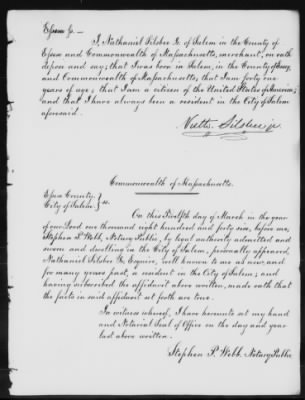 Essex ss —
I, Nathaniel Silsbee Jr. of Salem in the County of
Essex and Commonwealth of Massachusetts, merchant, on oath
depose and say; that I was born in Salem, in the County of Essex
and Commonwealth of Massachusetts; that I am forty one
years of age; that I am a citizen of the United States of America;
and that I have always been a resident in the City of Salem
aforesaid.
Nathl. Silsbee jr.
Commonwealth of Massachusetts.
Essex County.
City of Salem. } ss.
On this Twelfth day of March in the year
of our Lord one thousand eight hundred and forty six, before me,
Stephen P. Webb, Notary Public, by legal authority admitted and
sworn and dwelling in the City of Salem, personally appeared,
Nathaniel Silsbee Jr. Esquire, well known to me as now, and
for many years past, a resident in the City of Salem; and
having subscribed the affidavit above written, made oath that
the facts in said affidavit set forth are true.
In witness whereof, I have hereunto set my hand
and Notarial Seal of Office on the day and year
last above written.
Stephen P. Webb. Notary Public